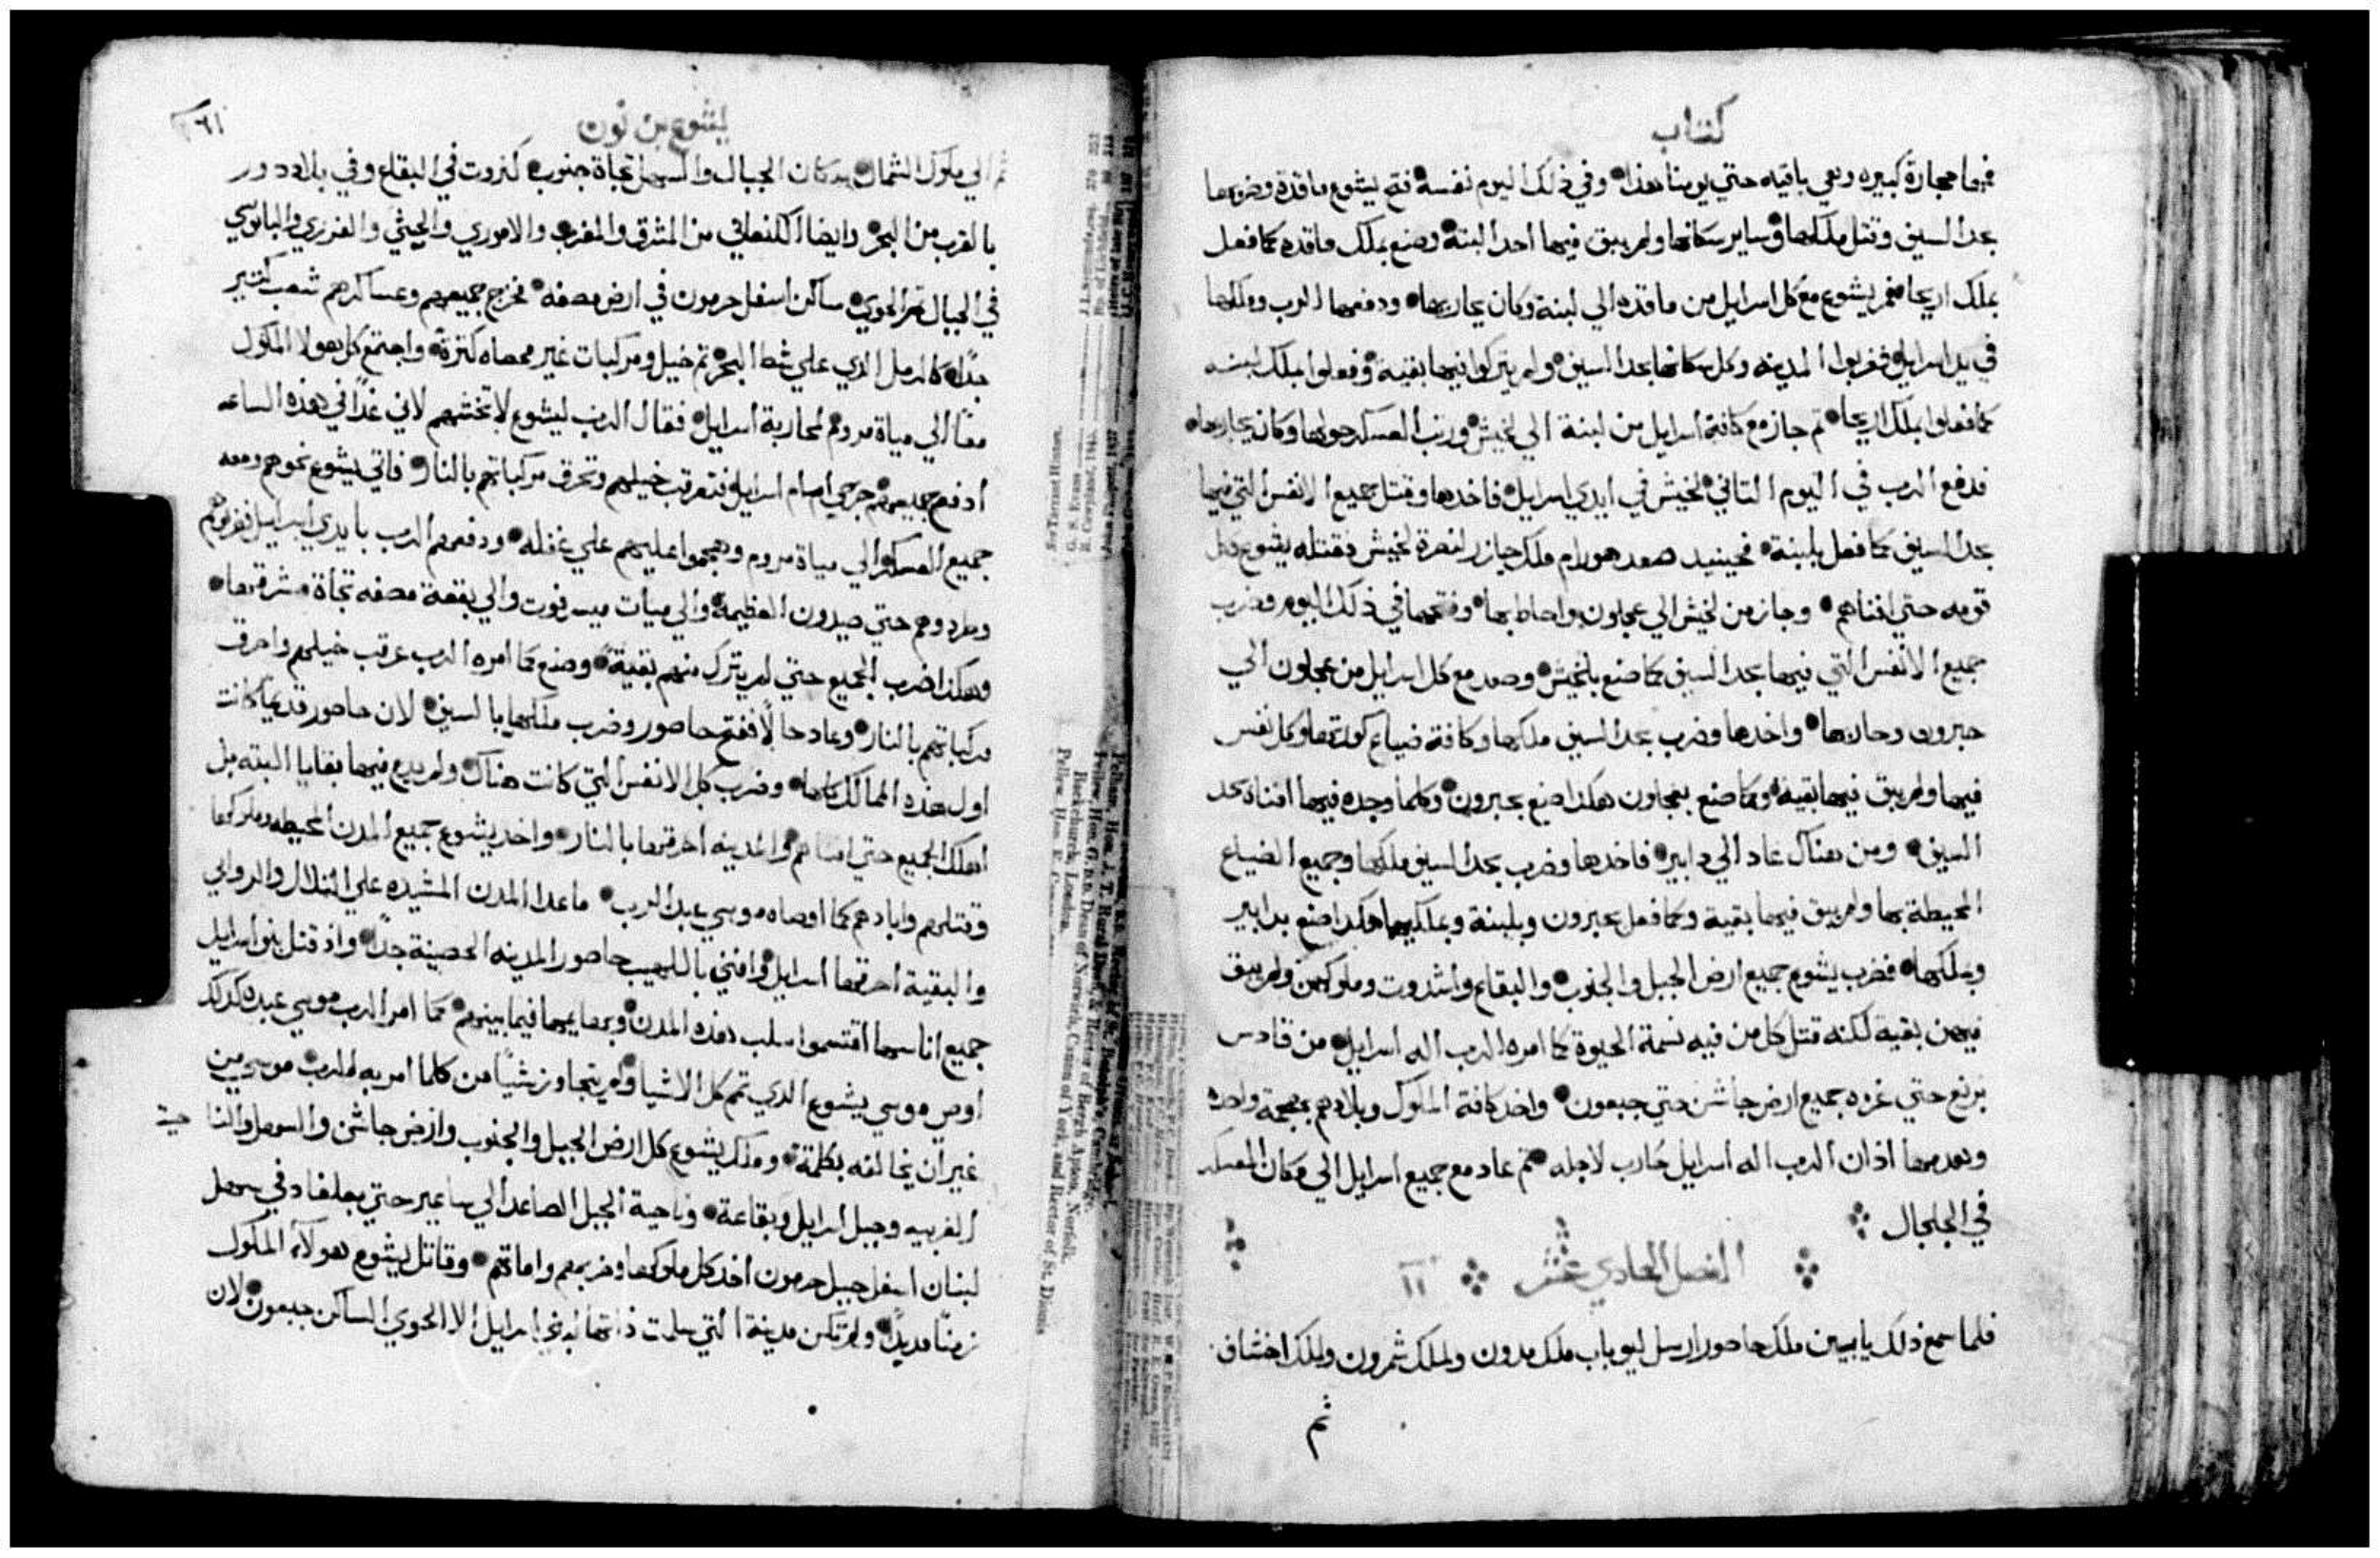 كتاب
فيها حجارة كبيره وهي باقيه حتي يومنا هذا وفي ذلك اليوم نفسه فتح يشوع ماقدة وضربها
بحد السيف وقتل ملكها وساير سكانها ولم يبق فيها احد البتة وصنع بملك ماقده كما فعل
بملك اريحا فمر يشوع مع كل اسرايل من ماقده الي لبنة وكان يحاربها ودفعها الرب وملكها
في يد اسرايل فضربوا المدينه وكل سكانها بحد السيف ولم يتركوا فيها بقية وفعلوا بملك لبنه
كما فعلوا بملك اريحا ثم جاز مع كافة اسرايل من لبنة الي لخيش ورتب العسكر حولها وكان يحاربها
فدفع الرب في اليوم الثاني لخيش في ايدي اسرايل فاخدها وقتل جميع الانفس التي فيها
بحد السيف كما فعل بلبنة فحينيد صعد هورام ملك جازر لنصرة لخيش فقتله يشوع مع كل
قومه حتي افناهم وجاز من لخيش الي عجلون واحاط بها وفتحها في ذلك اليوم وضرب
جميع الانفس التي فيها بحد السيف كما صنع بلخيش وصعد مع كل اسرايل من عجلون الي
حبرون وحاربها واخدها وضرب بحد السيف ملكها وكافة ضياع كورتها وكل نفس
فيها ولم يبق فيها بقية وكما صنع بعجلون هكذا صنع بحبرون وكلما وجده فيها افناه بحد
السيف ومن هناك عاد الي دابير فاخدها وضرب بحد السيف ملكها وجميع الضياع
المحيطة بها ولم يبق فيها بقية وكما فعل بحبرون وبلبنة وبملكيهما هكدا صنع بدابير
وبملكها فضرب يشوع جميع ارض الجبل والجنوب والبقاع واشدوت وملوكهن ولم يبق
فيهن بقية لكنه قتل كل من فيه نسمة الحيوة كما امره الرب اله اسرايل من قادس
برنع حتي غزه جميع ارض جاشن حتي جبعون واخد كافة الملوك وبلادهم بهجمة واحده
لان الرب اله اسرايل حارب لاجله ثم عاد مع جميع اسرايل الي مكان المعسكر
في الجلجال
الفصل الحادي عشر ١١
فلما سمع ذلك يابين ملك حاصور ارسل ليوباب ملك مدون ولملك شمرون ولملك اخشاف
ثم
يشوع بن نون
ثم الي ملوك الشمال سكان الجبال والسهل تجاة جنوب كنروت في البقاع وفي بلاد دور
بالقرب من البحر وايضا الكنعاني من المشرق والمغرب والاموري والحيثي والفرزي واليابوسي
في الجبال ثم الحوي ساكن اسفل حرمون في ارض مصفه فخرج جميعهم وعساكرهم شعب كثير
جدا كالرمل الذي علي شط البحر ثم خيل ومركبات غير محصاه كثرة واجتمع كل هولا الملوك
معا الي مياة مروم لمحاربة اسرايل فقال الرب ليشوع لا تخشهم لاني غدا في هذه الساعه
ادفع جميعهم جرحي امام اسرايل فتعرقب خيلهم وتحرق مركباتهم بالنار فاتي يشوع نحوهم ومعه
جميع العسكر الي مياة مروم وهجموا عليهم علي غفله ودفعهم الرب بايدي اسرايل فضربوهم
وطردوهم حتي صيدون العظيمة والي ميات ميسرفوت والي بقعة مصفه تجاة مشرقها
وهكذا ضرب الجميع حتي لم يترك منهم بقية وصنع كما امره الرب عرقب خيلهم واحرق
مركباتهم بالنار وعاد حالا ففتح حاصور وضرب ملكها بالسيف لان حاصور قديما كانت
اول هذه الممالك كلها وضرب كل الانفس التي كانت هناك ولم يدع فيها بقايا البته بل
اهلك الجميع حتي افناهم والمدينه احرقها بالنار واخد يشوع جميع المدن المحيطه وملوكها
وقتلهم وابادهم كما اوصاه موسي عبد الرب ماعدا المدن المشيده علي التلال والروابي
والبقية احرقها اسرايل وافني باللهيب حاصور المدينه الحصينة جدا واذ قتل بنو اسرايل
جميع اناسها اقتسموا سلب هذه المدن وبهايمها فيما بينهم كما امر الرب موسي عبده كدلك
اوصي موسي يشوع الدي تم كل الاشيا ولم يتجاوز شيا من كلما امر به الرب موسي من
غير ان يخالفه بكلمة وملك يشوع كل ارض الجبل والجنوب وارض جاشن والسهل والناحية
الغربيه وجبل اسرايل وبقاعة وناحية الجبل الصاعد الي ساعير حتي بعلغاد في سهل
لبنان اسفل جبل حرمون اخد كل ملوكها وضربهم واماتهم وقاتل يشوع هولآء الملوك
زمنا مديدا ولم تكن مدينة التي سلمت ذاتها لبني اسرايل الا الحوي الساكن جبعون لان